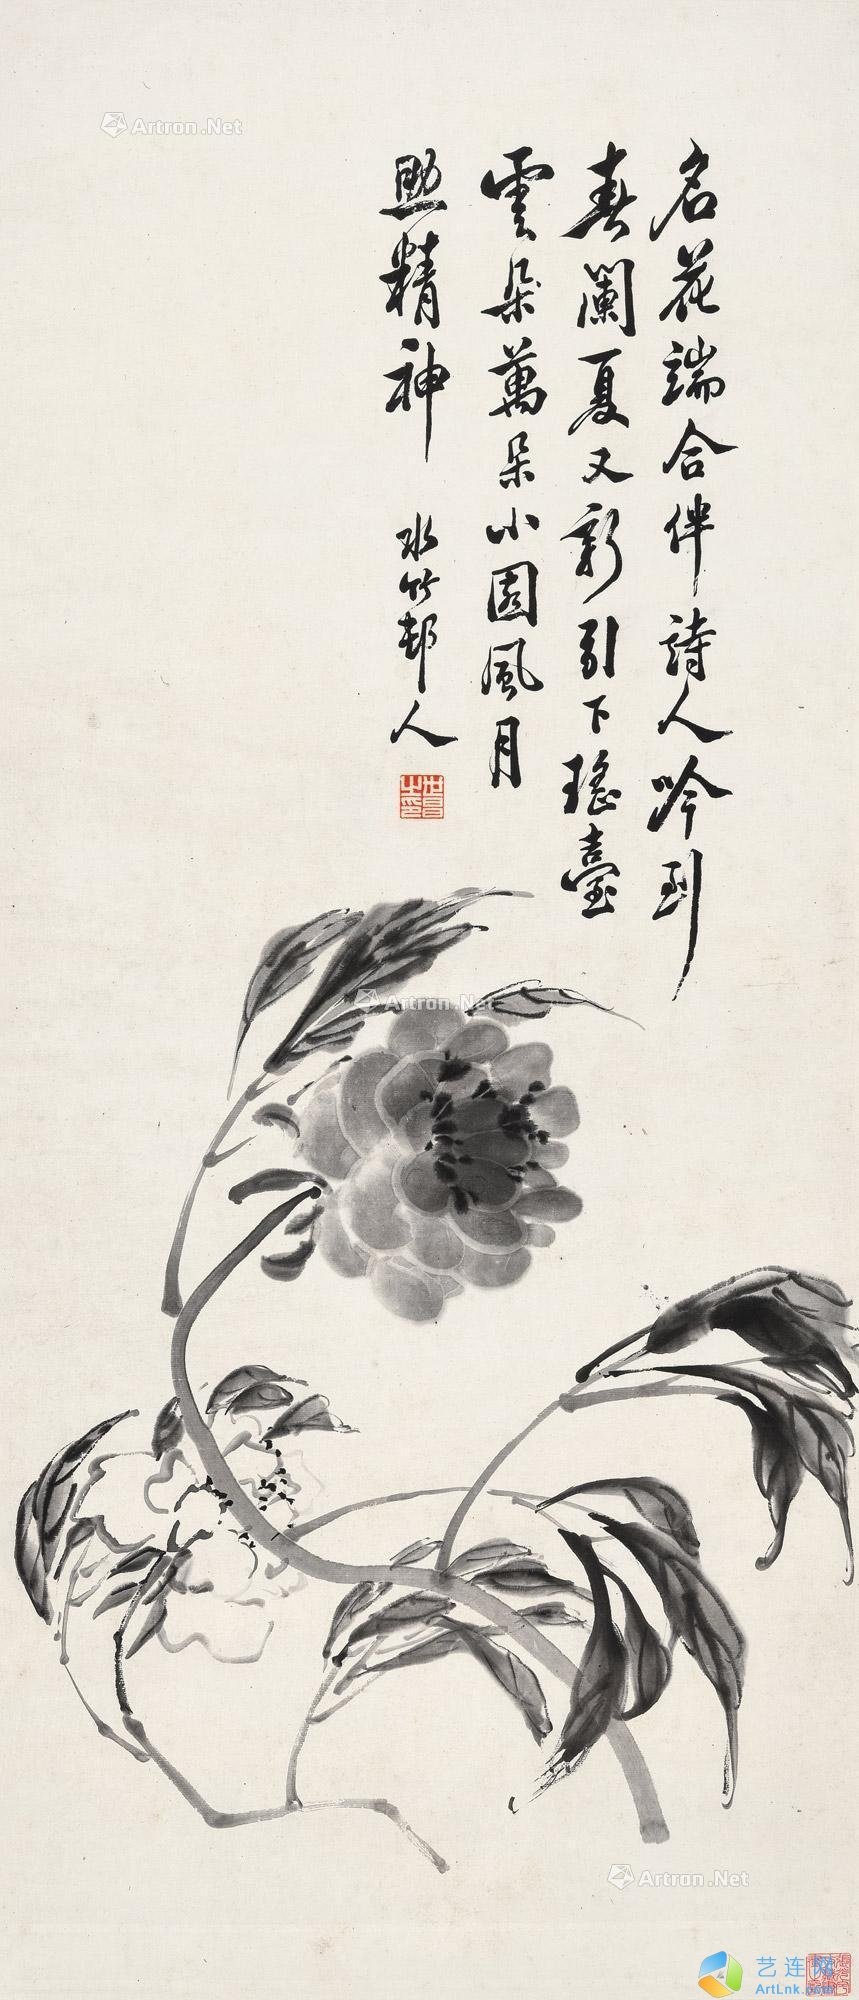 名花端合伴詩人吟到
春闌夏又新引下瑤臺
雲朵萬朵小園風月
照精神
水竹邨人
世昌之印
Artron.Net
Artron.Net
Artron.Net
艺连网
ArtLnk.com